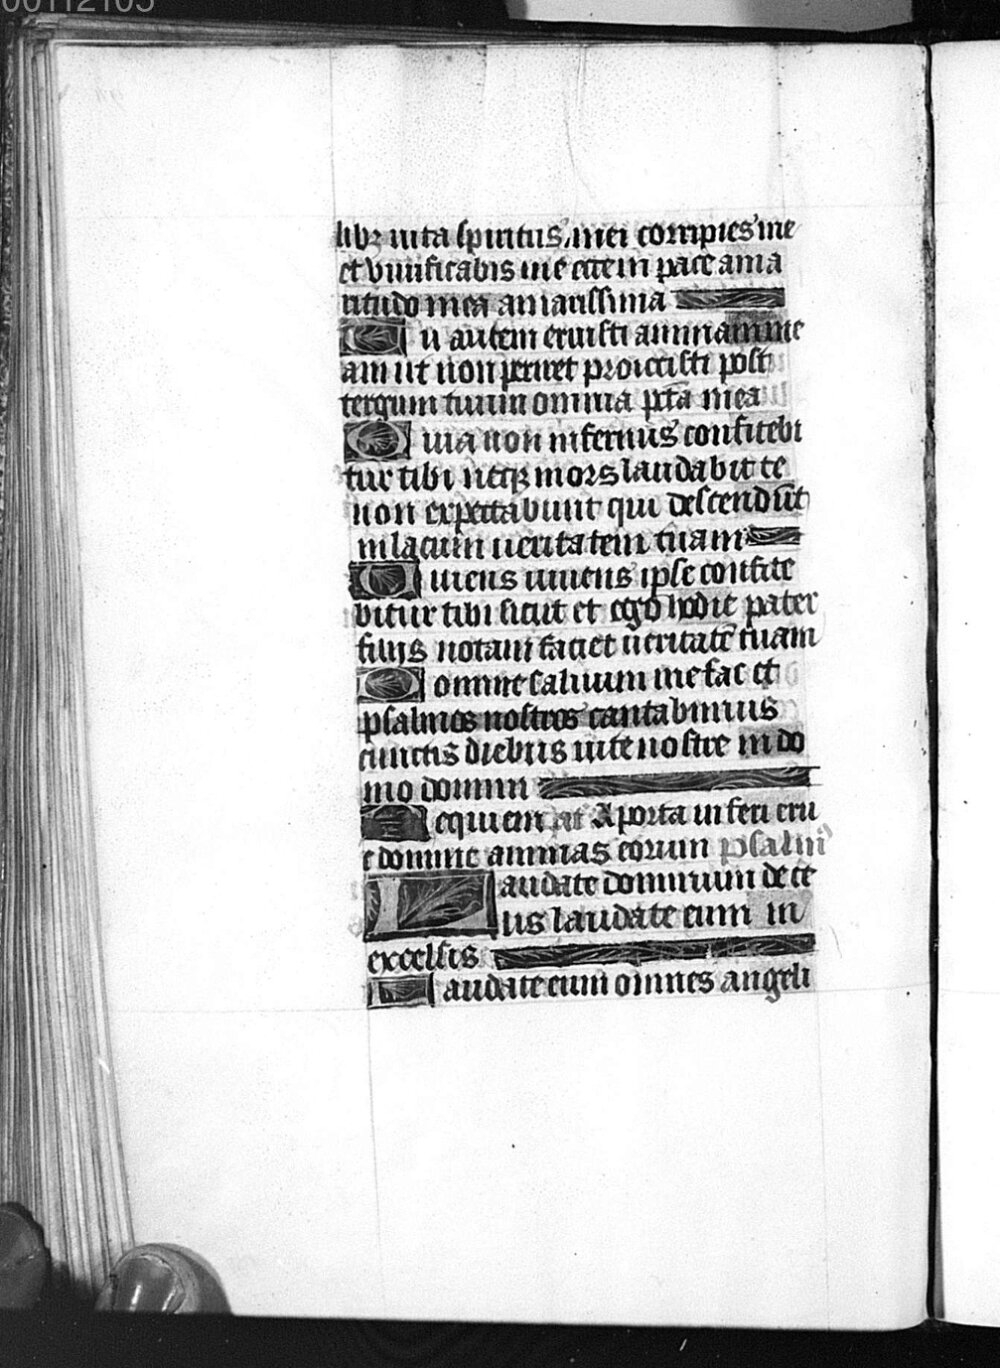 00112103
libꝫ uita spiritus mei corripies me
et vivificabis me ecce in pace ama
ritudo mea amarissima
Tu autem eruisti animam me
am ut non periret proiecisti post
tergum tuum omnia pctā mea
Quia non infernus confitebi
tur tibi neqꝫ mors laudabit te
non expectabunt qui descendūt
in lacum ueritatem tuam
Uiuens uiuens ipse confite
bitur tibi sicut et ego hodie pater
filijs notam faciet ueritatē tuam
Domine saluum me fac et
psalmos nostros cantabimus
cunctis diebus uite nostre in do
mo domini
Requiem A porta inferi eru
e domine animas eorum psalm
Laudate dominum de ce
lis laudate eum in
excelsis
Laudate eum omnes angeli